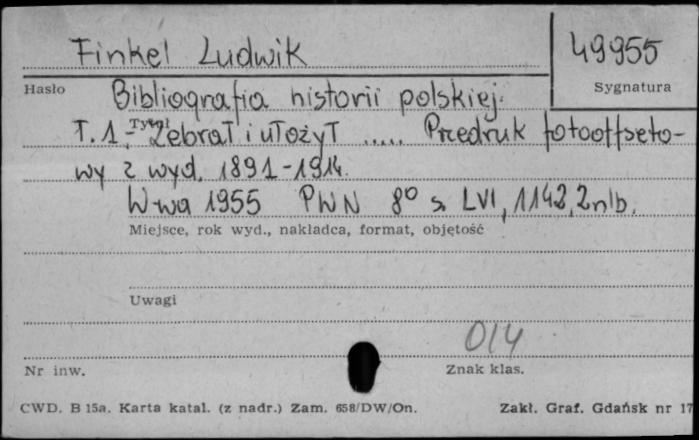 Finkel Ludwik
49955
Hasło
Sygnatura
Bibliografia historii polskiej.
Tytuł
T.1. Zebrał i ułożył ..... Przedruk fotooffseto-
wy z wyd. 1891-1914.
W-wa 1955 PWN 8° s. LVI, 1142, 2nlb.
Miejsce, rok wyd., nakładca, format, objętość
Uwagi
014
Nr inw.
Znak klas.
CWD. B 15a. Karta katal. (z nadr.) Zam. 658/DW/On.
Zakł. Graf. Gdańsk nr 17